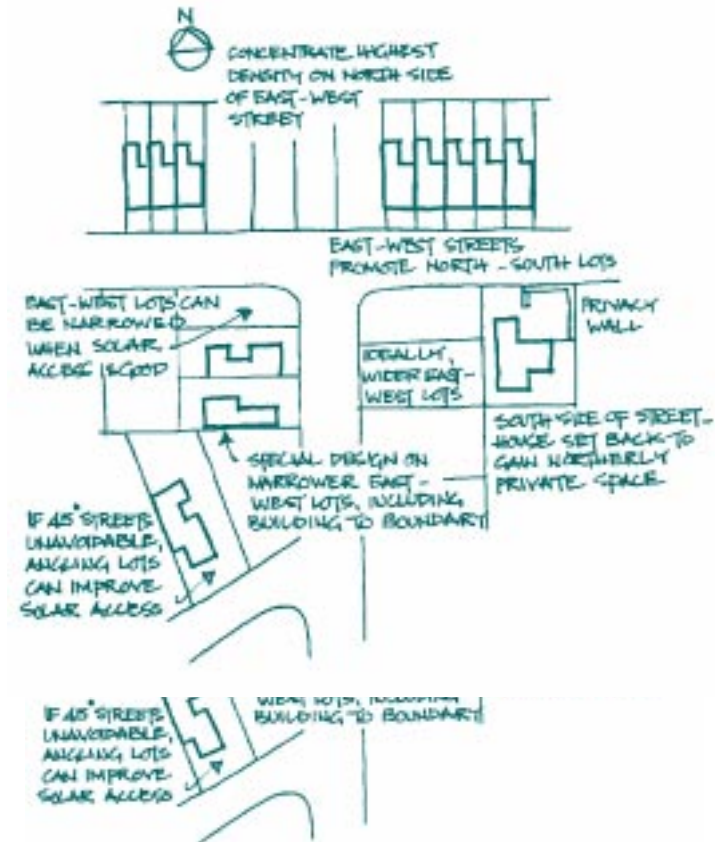 N
CONCENTRATE HIGHEST
DENSITY ON NORTH SIDE
OF EAST-WEST
STREET
EAST-WEST STREETS
PROMOTE NORTH-SOUTH LOTS
EAST-WEST LOTS CAN
BE NARROWED
WHEN SOLAR
ACCESS IS GOOD
IDEALLY,
WIDER EAST-
WEST LOTS
PRIVACY
WALL
SOUTH SIDE OF STREET-
HOUSE SET BACK TO
GAIN NORTHERLY
PRIVATE SPACE
SPECIAL DESIGN ON
NARROWER EAST-
WEST LOTS, INCLUDING
BUILDING TO BOUNDARY
IF 45° STREETS
UNAVOIDABLE,
ANGLING LOTS
CAN IMPROVE
SOLAR ACCESS
WEST LOTS, INCLUDING
BUILDING TO BOUNDARY
IF 45° STREETS
UNAVOIDABLE,
ANGLING LOTS
CAN IMPROVE
SOLAR ACCESS